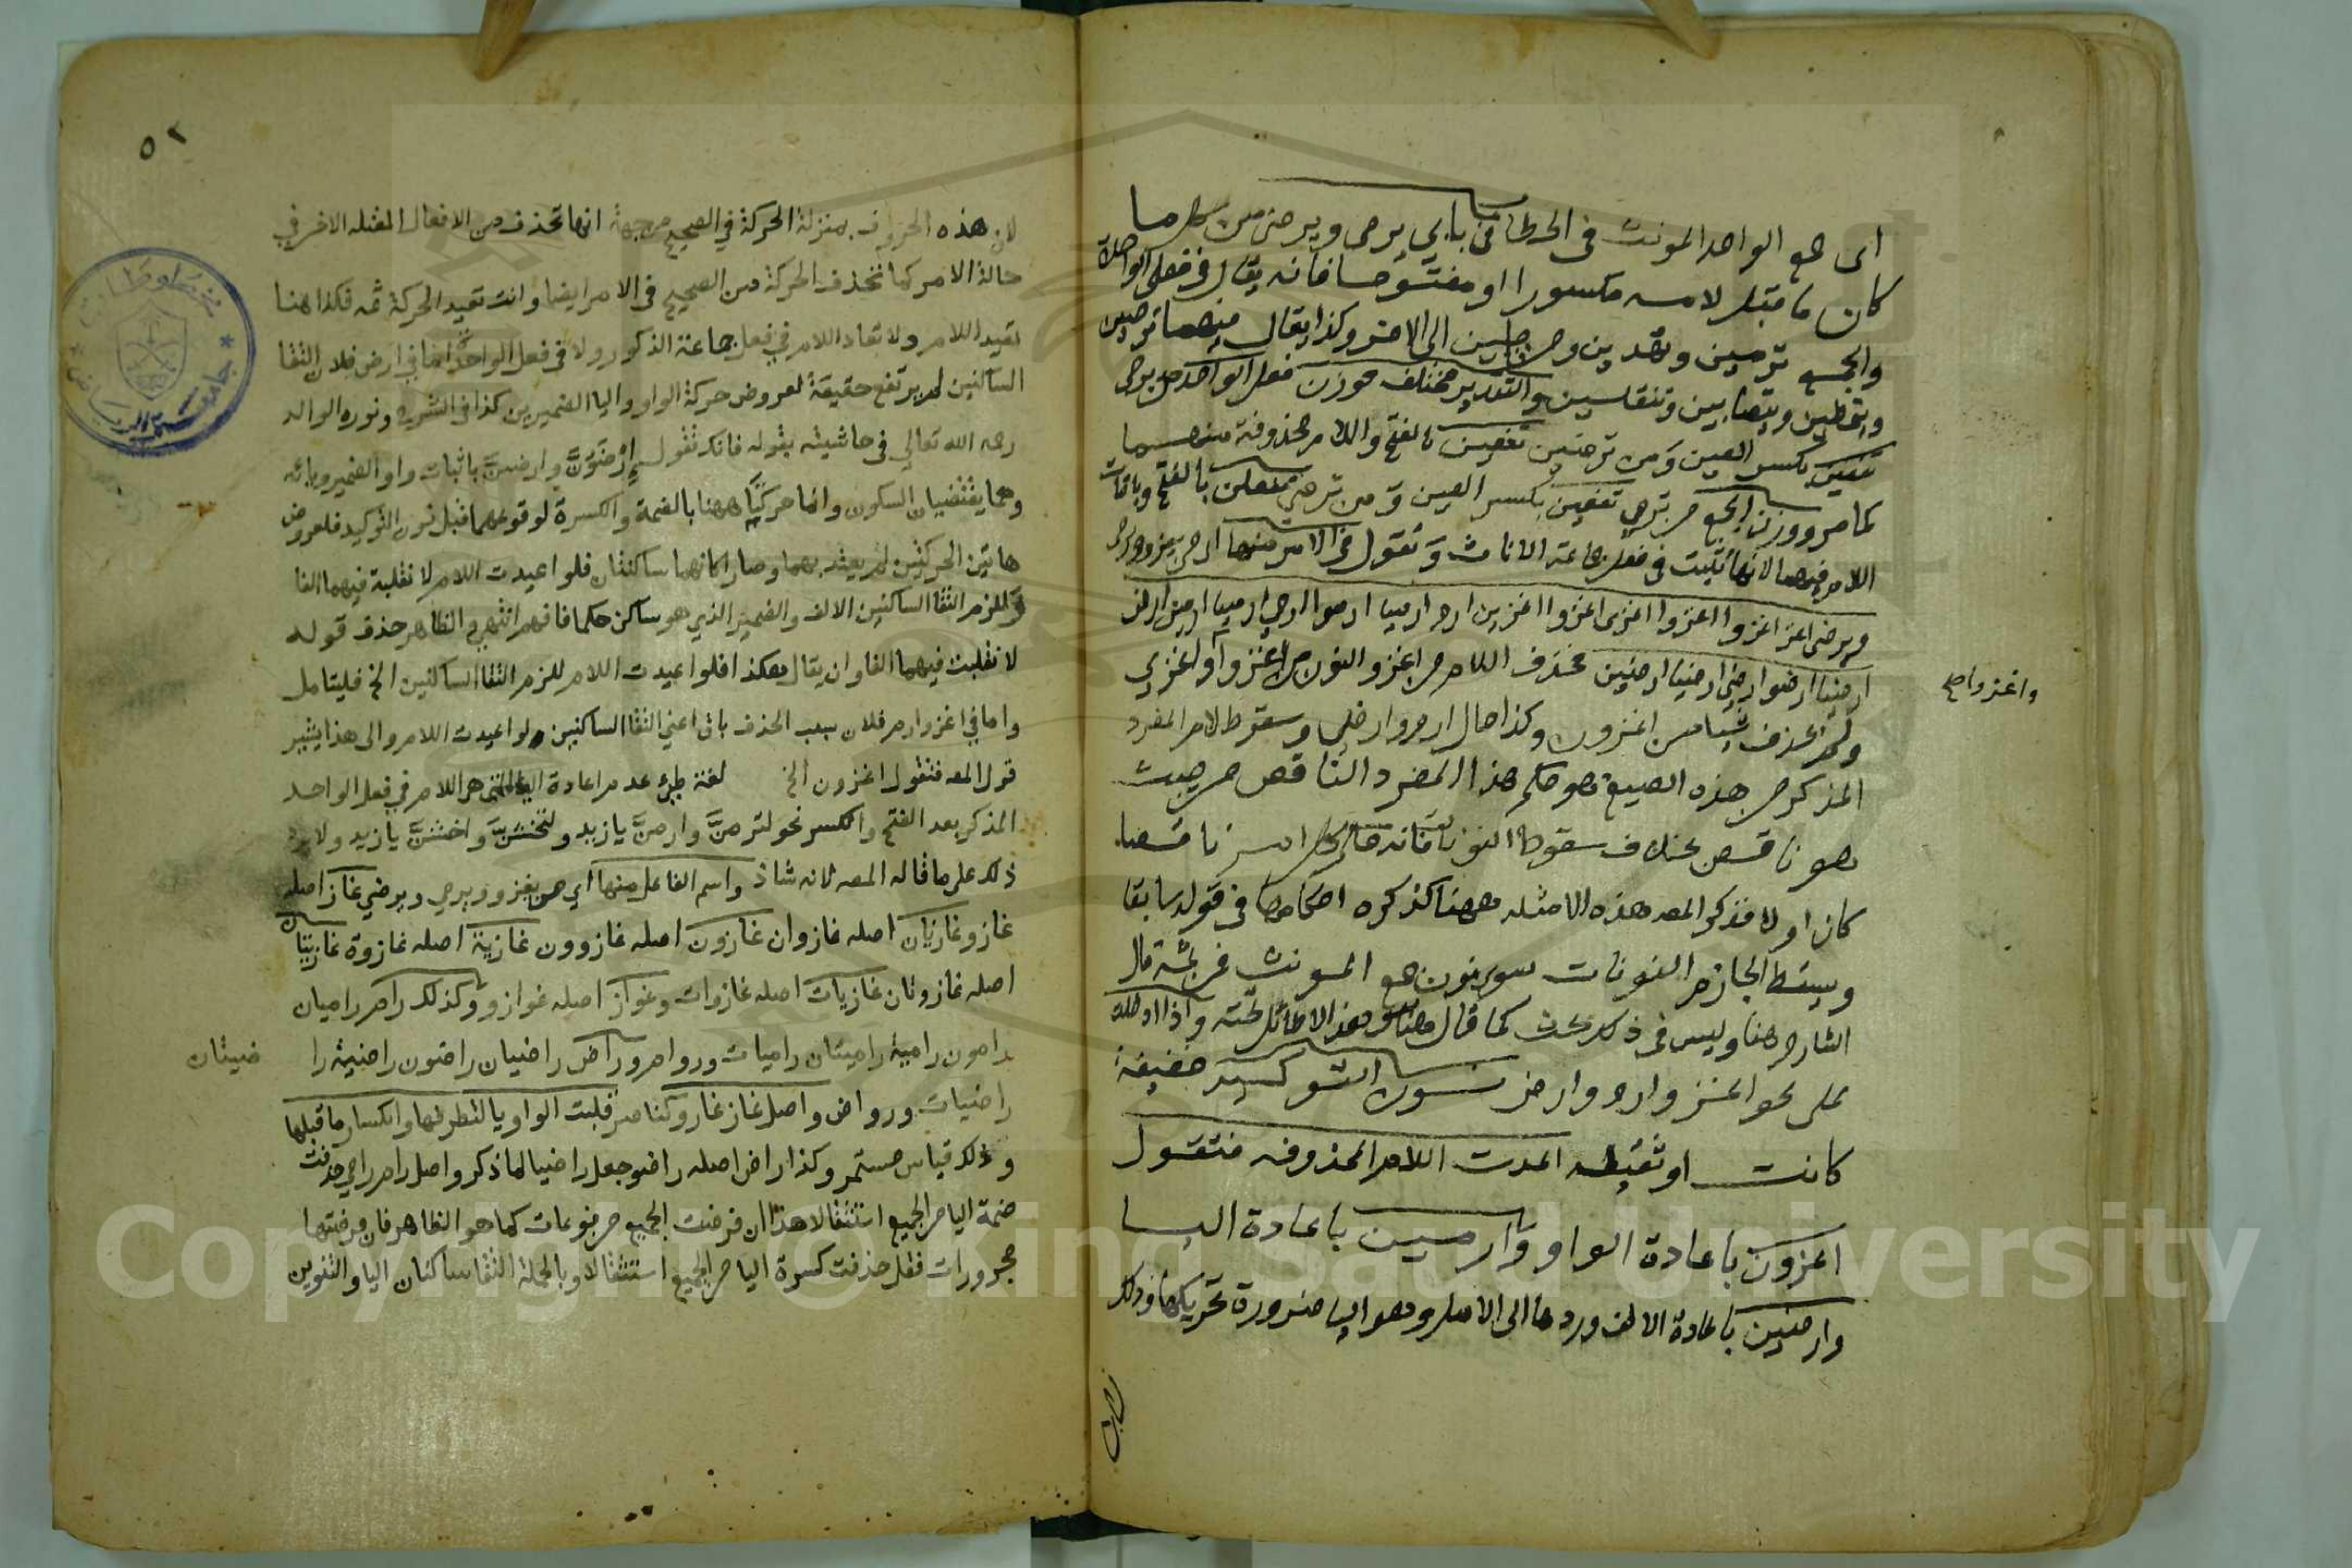 اى مع الواحد المونث فى الخطاب فى بابي يرمى ويرضى من كل ما
كان ما قبل لامه مكسورا او مفتوحا فانه يقال فى فعلى الواحدة
والجمع ترمين وتهدين الى الاخر وكذا يقال فيهما ترضين
وتتصابين وتنقلسين والتقدير مختلف فوزن فعل الواحدة من يرمى
تفعين بكسر العين ومن ترضين تفعين بالفتح واللام محذوفة منهما
كما مر ووزن الجمع من ترمي تفعلن بكسر العين ومن ترضى تفعلن بالفتح وباثبات
اللام فيهما لانها تثبت فى فعل جماعة الاناث وتقول فى الامر منها اى من يغزو ويرمى
ويرضى اغز اغزوا اغزوا اغزى اغزوا اغزون ارم ارميا ارموا ارمي ارميا ارمين ارض
ارضيا ارضوا ارضي ارضيا ارضين بحذف اللام من اغز والنون من اغزوا واغزي
ولم يحذف شيا من اغزون وكذا حال ارم وارض وسقوط لام المفرد
المذكر من هذه الصيغ هو حكم هذا المفرد الناقص من حيث
هو ناقص بخلاف سقوط النونات فانه حال كل امر ناقصا
كان اولا فذكر المصه هذه الامثله ههنا كذكره احكامها فى قوله سابقا
ويسقط الجازم النونات سوى نون جمع المونث فمن ثمة قال
الشارح هنا وليس فى ذلك بحث كما قال وهذا لا طائل تحته واذا ادخلت
على نحو اغز وارم وارض نون التوكيد خفيفة
كانت او ثقيله اعدت اللام المحذوفه فتقول
اغزون باعادة الواو وارمين باعادة اليا
وارضين باعادة الالف وردها الى الاصل وهو اليا ضرورة تحريكها وذلك
واغزوا صح
لان
٥٢
لان هذه الحروف بمنزلة الحركة في الصحيح من جهة انها تحذف من الافعال المقتله الاخر في
حالة الامر كما تحذف الحركة من الصحيح فى الامر ايضا وانت تعيد الحركة ثمه فكذا هنا
تعيد اللام ولا تعاد اللام في فعل جماعة الذكور ولا فى فعل الواحدة اما في ارض فلان التقا
الساكنين لم يرتفع حقيقة لعروض حركة الواو واليا الضميرين كذا فى الشرح ونوره الوالد
رحمه الله تعالي فى حاشيته بقوله فانك تقول ارضون وارضين باثبات واو الضمير ويائه
وهما يقتضيان السكون وانما حركتا ههنا بالضمة والكسرة لوقوعهما قبل نون التوكيد فلعروض
هاتين الحركتين لم يعتد بهما وصارا كانهما ساكنتان فلو اعيدت اللام لا نقلبة فيهما الفا
وللزم التقا الساكنين الالف والضمير الذي هو ساكن حكما فافهم انتهى والظاهر حذف قوله
لا نقلبت فيهما الفا وان يقال هكذا فلو اعيدت اللام للزم التقا الساكنين الخ فليتامل
واما في اغز وارم فلان سبب الحذف باق اعني التقا الساكنين ولو اعيدت اللام والى هذا يشير
قول المصه فتقول اغزون الخ لغة طيء عدم اعادة اليا التى هي اللام في فعل الواحد
المذكر بعد الفتح والكسر نحو لترمن وارمن يا زيد ولتخشن واخشن يا زيد ولا يرد
ذلك على ما قاله المصه لانه شاذ واسم الفاعل منها اي من يغزو ويرمي ويرضي غاز اصله
غازو غازيان اصله غازوان غازون اصله غازوون غازية اصله غازوة غازيتان
اصله غازوتان غازيات اصله غازوات وغواز اصله غوازو وكذلك رام راميان
رامون رامية راميتان راميات وروام وراض راضيان راضون راضية را
ضيتان
راضيات ورواض واصل غاز غازو كناصر قلبت الواو يا لتطرفها وانكسار ما قبلها
وذلك قياس مستمر وكذا راض اصله راضو جعل راضيا لما ذكر واصل رام رامي حذفت
ضمة اليا من الجميع استثقالا هذا ان فرضت الجميع مرفوعات كما هو الظاهر فان فرضتها
مجرورات فقل حذفت كسرة اليا من الجميع استثقالا وبالجملة التقا ساكنان اليا والتنوين
Copyright © King Saud University